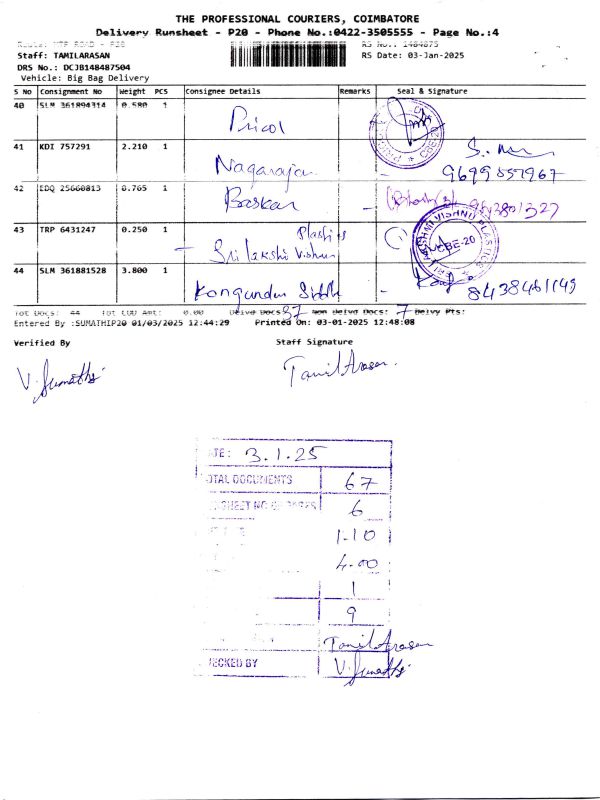 THE PROFESSIONAL COURIERS, COIMBATORE
Delivery Runsheet - P20 - Phone No.:0422-3505555 - Page No.:4
Route: MTP ROAD - P20 RS No.: 1484875
Staff: TAMILARASAN RS Date: 03-Jan-2025
DRS No.: DCJB148487504
Vehicle: Big Bag Delivery
S No Consignment No Weight PCS Consignee Details Remarks Seal & Signature
40 SLM 361894314 0.580 1 Pricol
41 KDI 757291 2.210 1 Nagarajan
42 EDQ 25660813 0.765 1 Baskar
43 TRP 6431247 0.250 1 Sri lakshi Vishnu Plastics CBE-20
44 SLM 361881528 3.800 1 Kongundu 8438461149
Tot Docs: 44 Tot COD Amt: 0.00 Delvd Docs: 37 Non Delvd Docs: 7 Delvy Pts:
Entered By :SUMATHIP20 01/03/2025 12:44:29 Printed On: 03-01-2025 12:48:08
Verified By Staff Signature
V. Sumathi Tamil Arasan.
DATE: 3.1.25
TOTAL DOCUMENTS 67
6
1.10
4.00
1
9
Tamil Arasan
CHECKED BY V. Sumathi